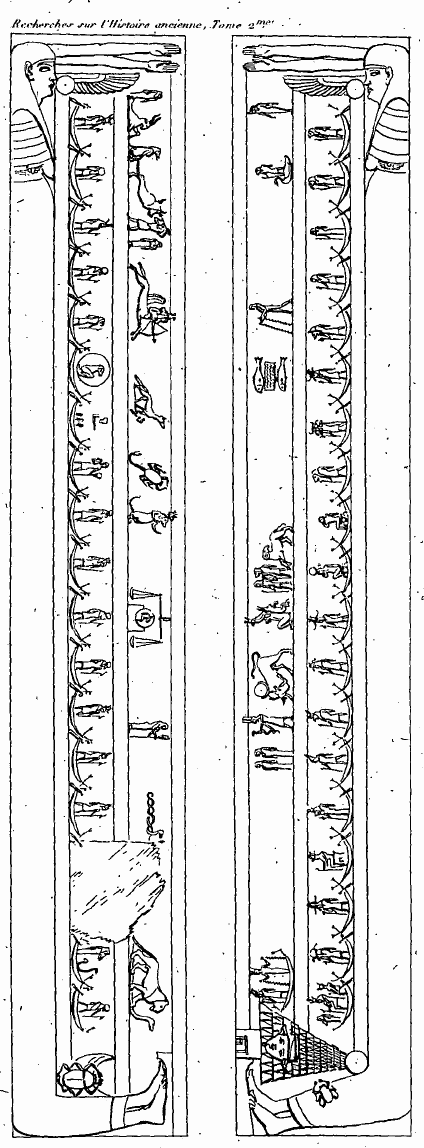 Recherches sur l'Histoire ancienne, Tome 2me.